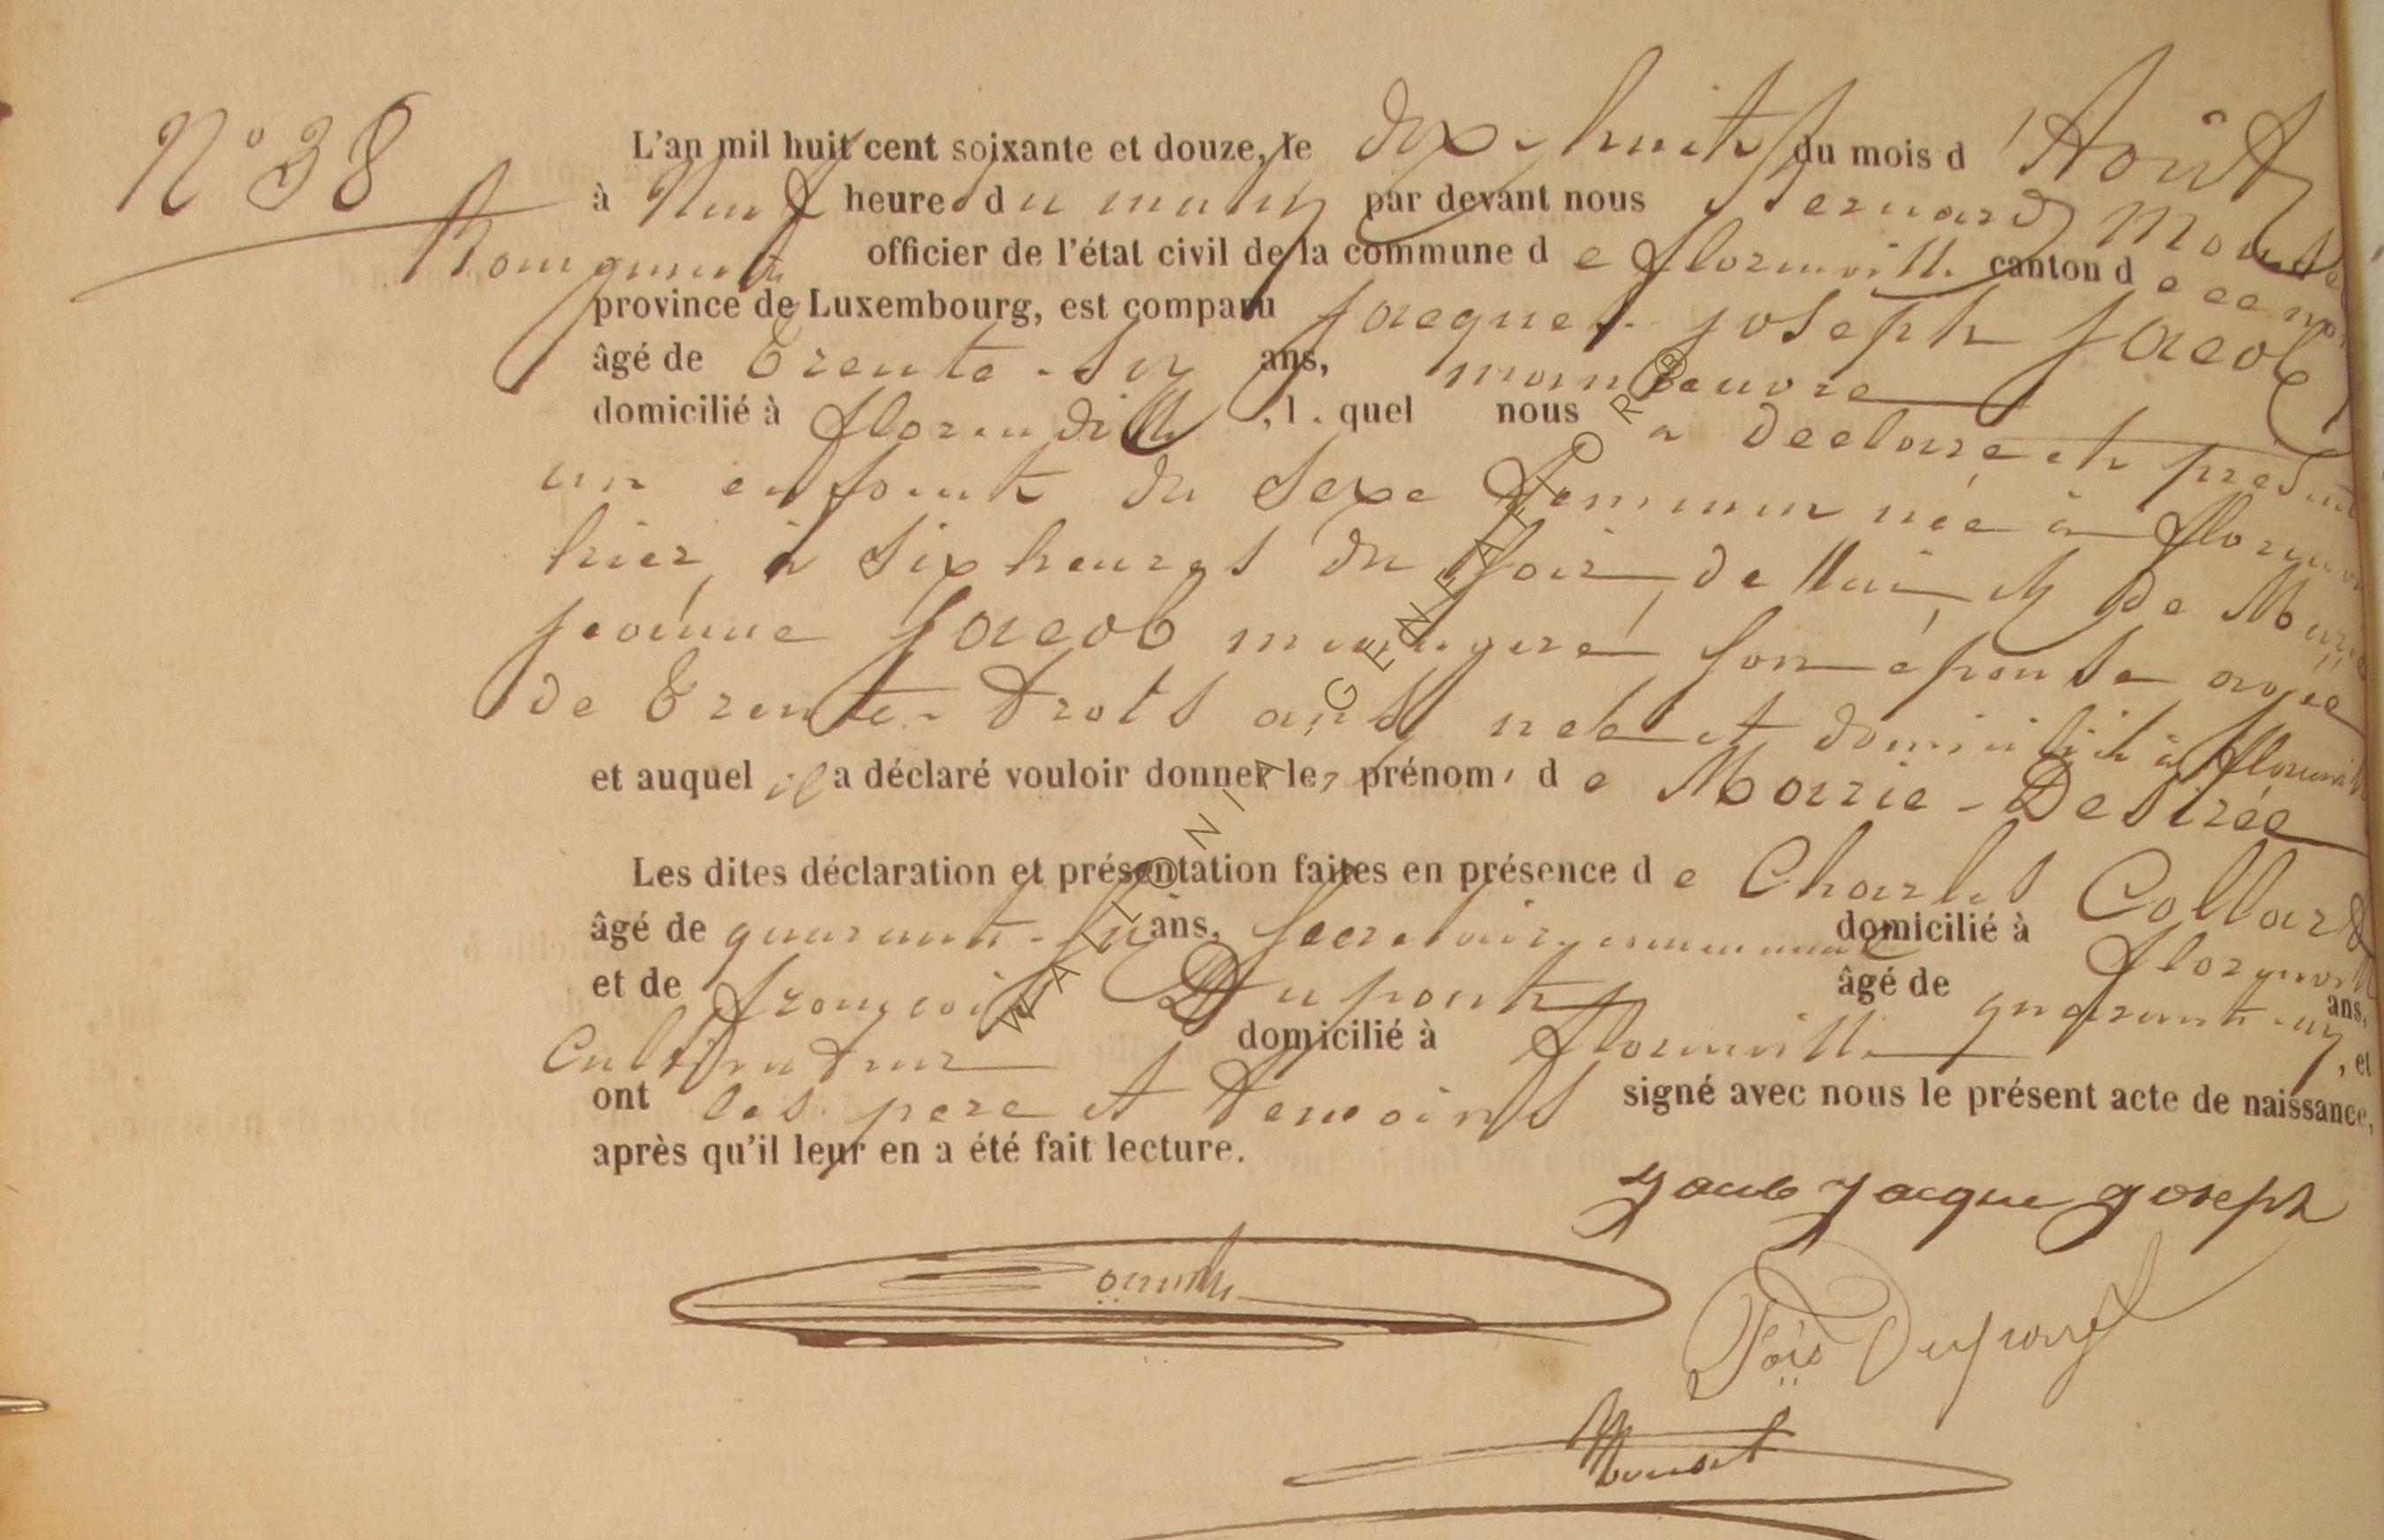 N° 38
L'an mil huit cent soixante et douze, le dix-huit du mois d'Août
à Neuf heures du matin par devant nous Bernard
officier de l'état civil de la commune de florenville canton de
province de Luxembourg, est comparu Jacques joseph Jacob
âgé de Trente-six ans, manoeuvre
domicilié à florenville, l. quel nous a declaré et présenté
un enfant du sexe feminin née à florenville
hier à six heures du soir de lui et de Marie
jeanne Jacob menagère son épouse agée
de Trente-trois ans née et domiciliée à florenville
et auquel il a déclaré vouloir donner les prénoms de Marie-Desirée
Les dites déclaration et présentation faites en présence de Charles Collard
âgé de quarante-six ans, secretaire communal domicilié à florenville
et de françois Dupont âgé de quarante-un ans,
Cultivateur domicilié à florenville, et
ont les pere et temoins signé avec nous le présent acte de naissance,
après qu'il leur en a été fait lecture.
Jacob Jacque Joseph
Fois Dupont
WALLONIA, GENEAFTOR